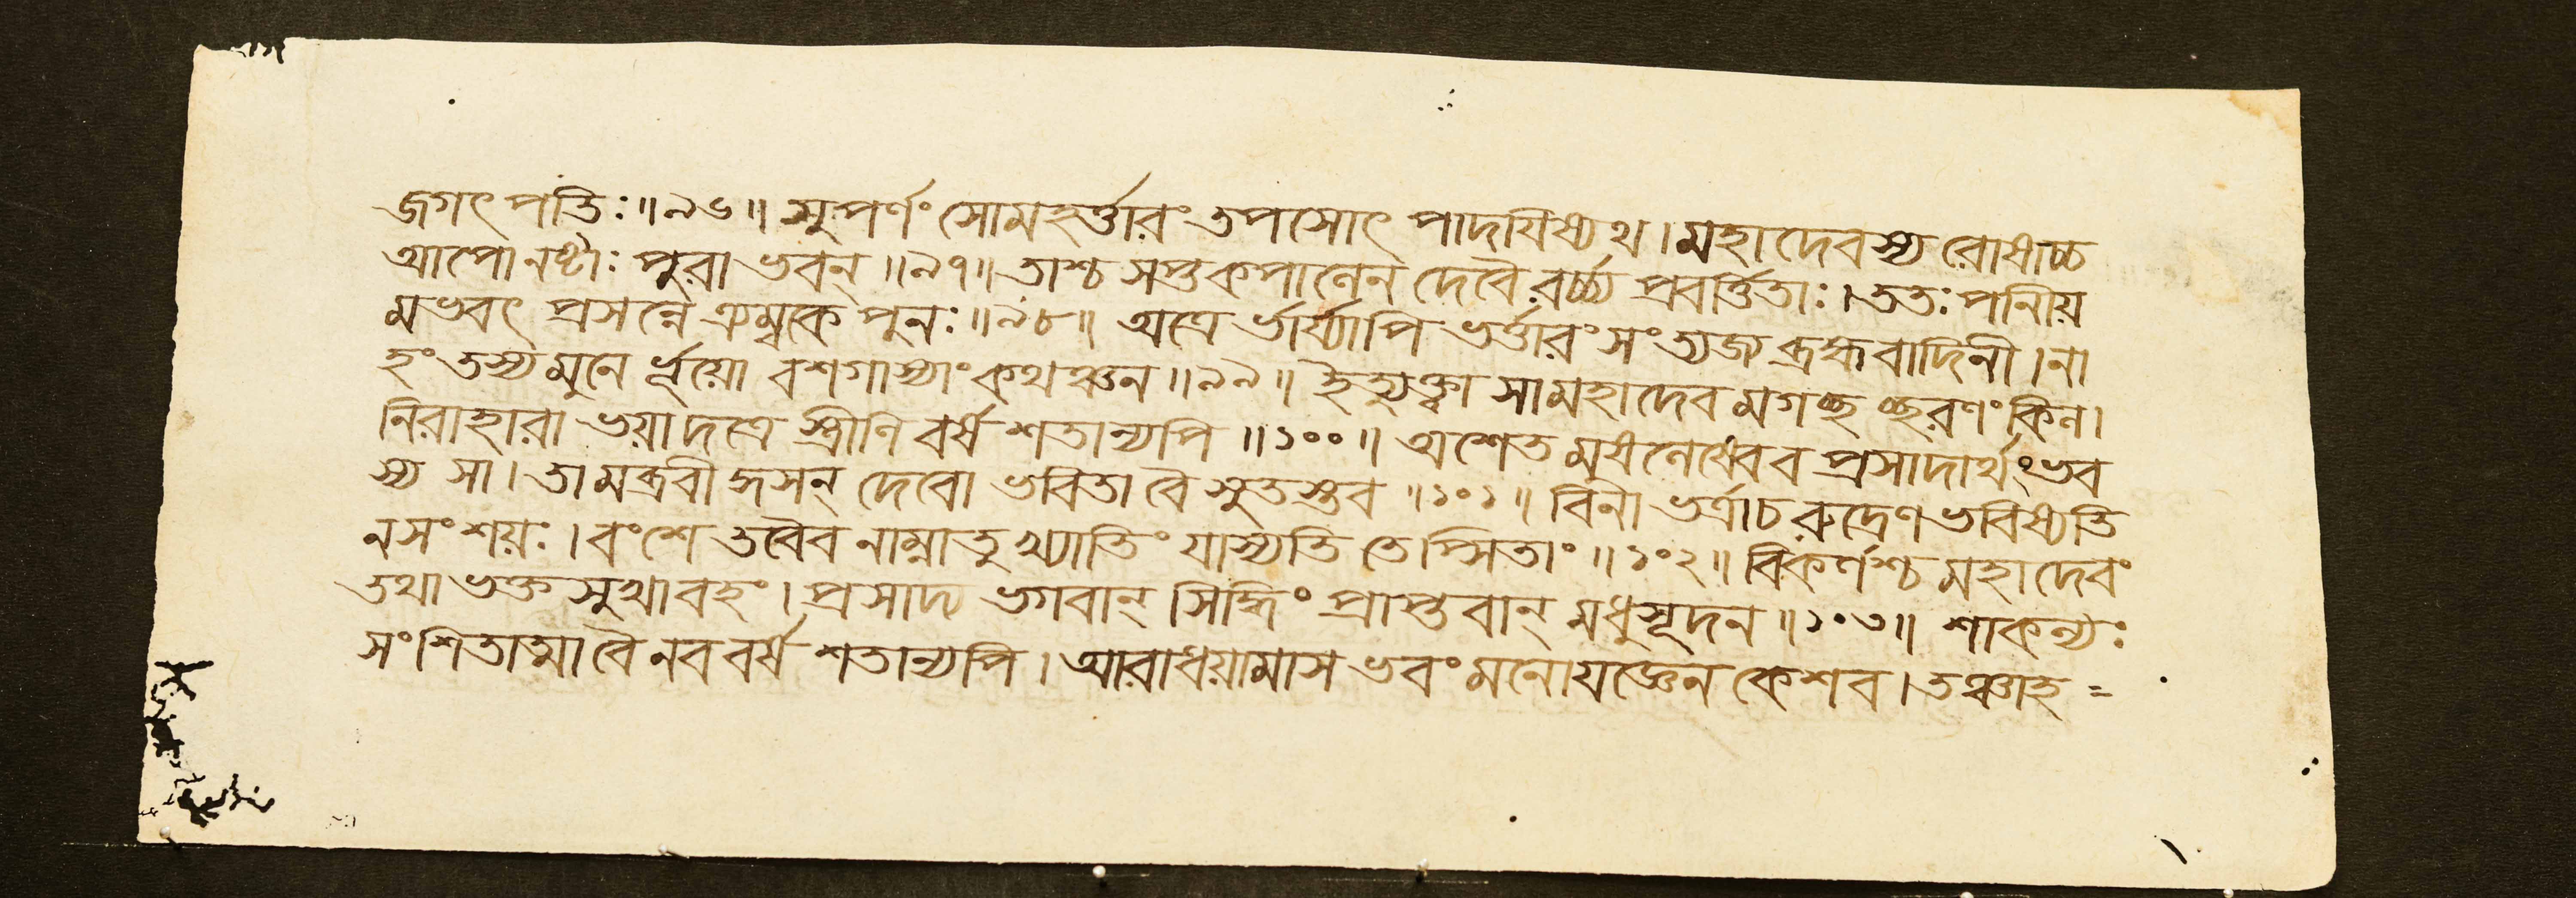 জগৎ পতিঃ ॥ ৯৬ ॥ সুপর্ণং সোমহর্ত্তারং তপসোৎ পাদয়িষ্যথ । মহাদেবস্য রোষাচ্চ
আপোনষ্টাঃ পুরা ভবন্ ॥ ৯৭ ॥ তাশ্চ সপ্তকপালেন দেবৈ রর্চ্চ্য প্রবর্ত্তিতাঃ । ততঃ পনীয়
মভবৎ প্রসন্নে ত্র্যম্বকে পুনঃ ॥ ৯৮ ॥ অত্রে র্ভার্য্যাপি ভর্ত্তারং সংত্যজ্য ব্রহ্মবাদিনী । না
হং তস্য মুনে র্ভূয়ো বশগাস্যাং কথঞ্চন ॥ ৯৯ ॥ ইত্যুক্ত্বা সা মহাদেব মগচ্ছ চ্ছরণং কিল ।
নিরাহারা ভয়াদত্রে স্ত্রীণি বর্ষ শতান্যপি ॥ ১০০ ॥ অশেত মুষলেষ্বেব প্রসাদার্থং ভব
স্য সা । তামব্রবী দ্ধসন্ দেবো ভবিতা বৈ সুতস্তব ॥ ১০১ ॥ বিনা ভর্ত্রাচ রুদ্রেণ ভবিষ্যতি
ন সংশয়ঃ । বংশে তবৈব নাম্নাতু খ্যাতিং যাস্যতি তেপ্সিতাং ॥ ১০২ ॥ বিকর্ণশ্চ মহাদেবং
তথা ভক্ত সুখাবহং । প্রসাদ্য ভগবান্ সিদ্ধিং প্রাপ্তবান্ মধুসূদন ॥ ১০৩ ॥ শাকল্যঃ
সংশিতাত্মা বৈ নব বর্ষ শতান্যপি । আরাধয়ামাস ভবং মনোযজ্ঞেন কেশব । তঞ্চাহ =